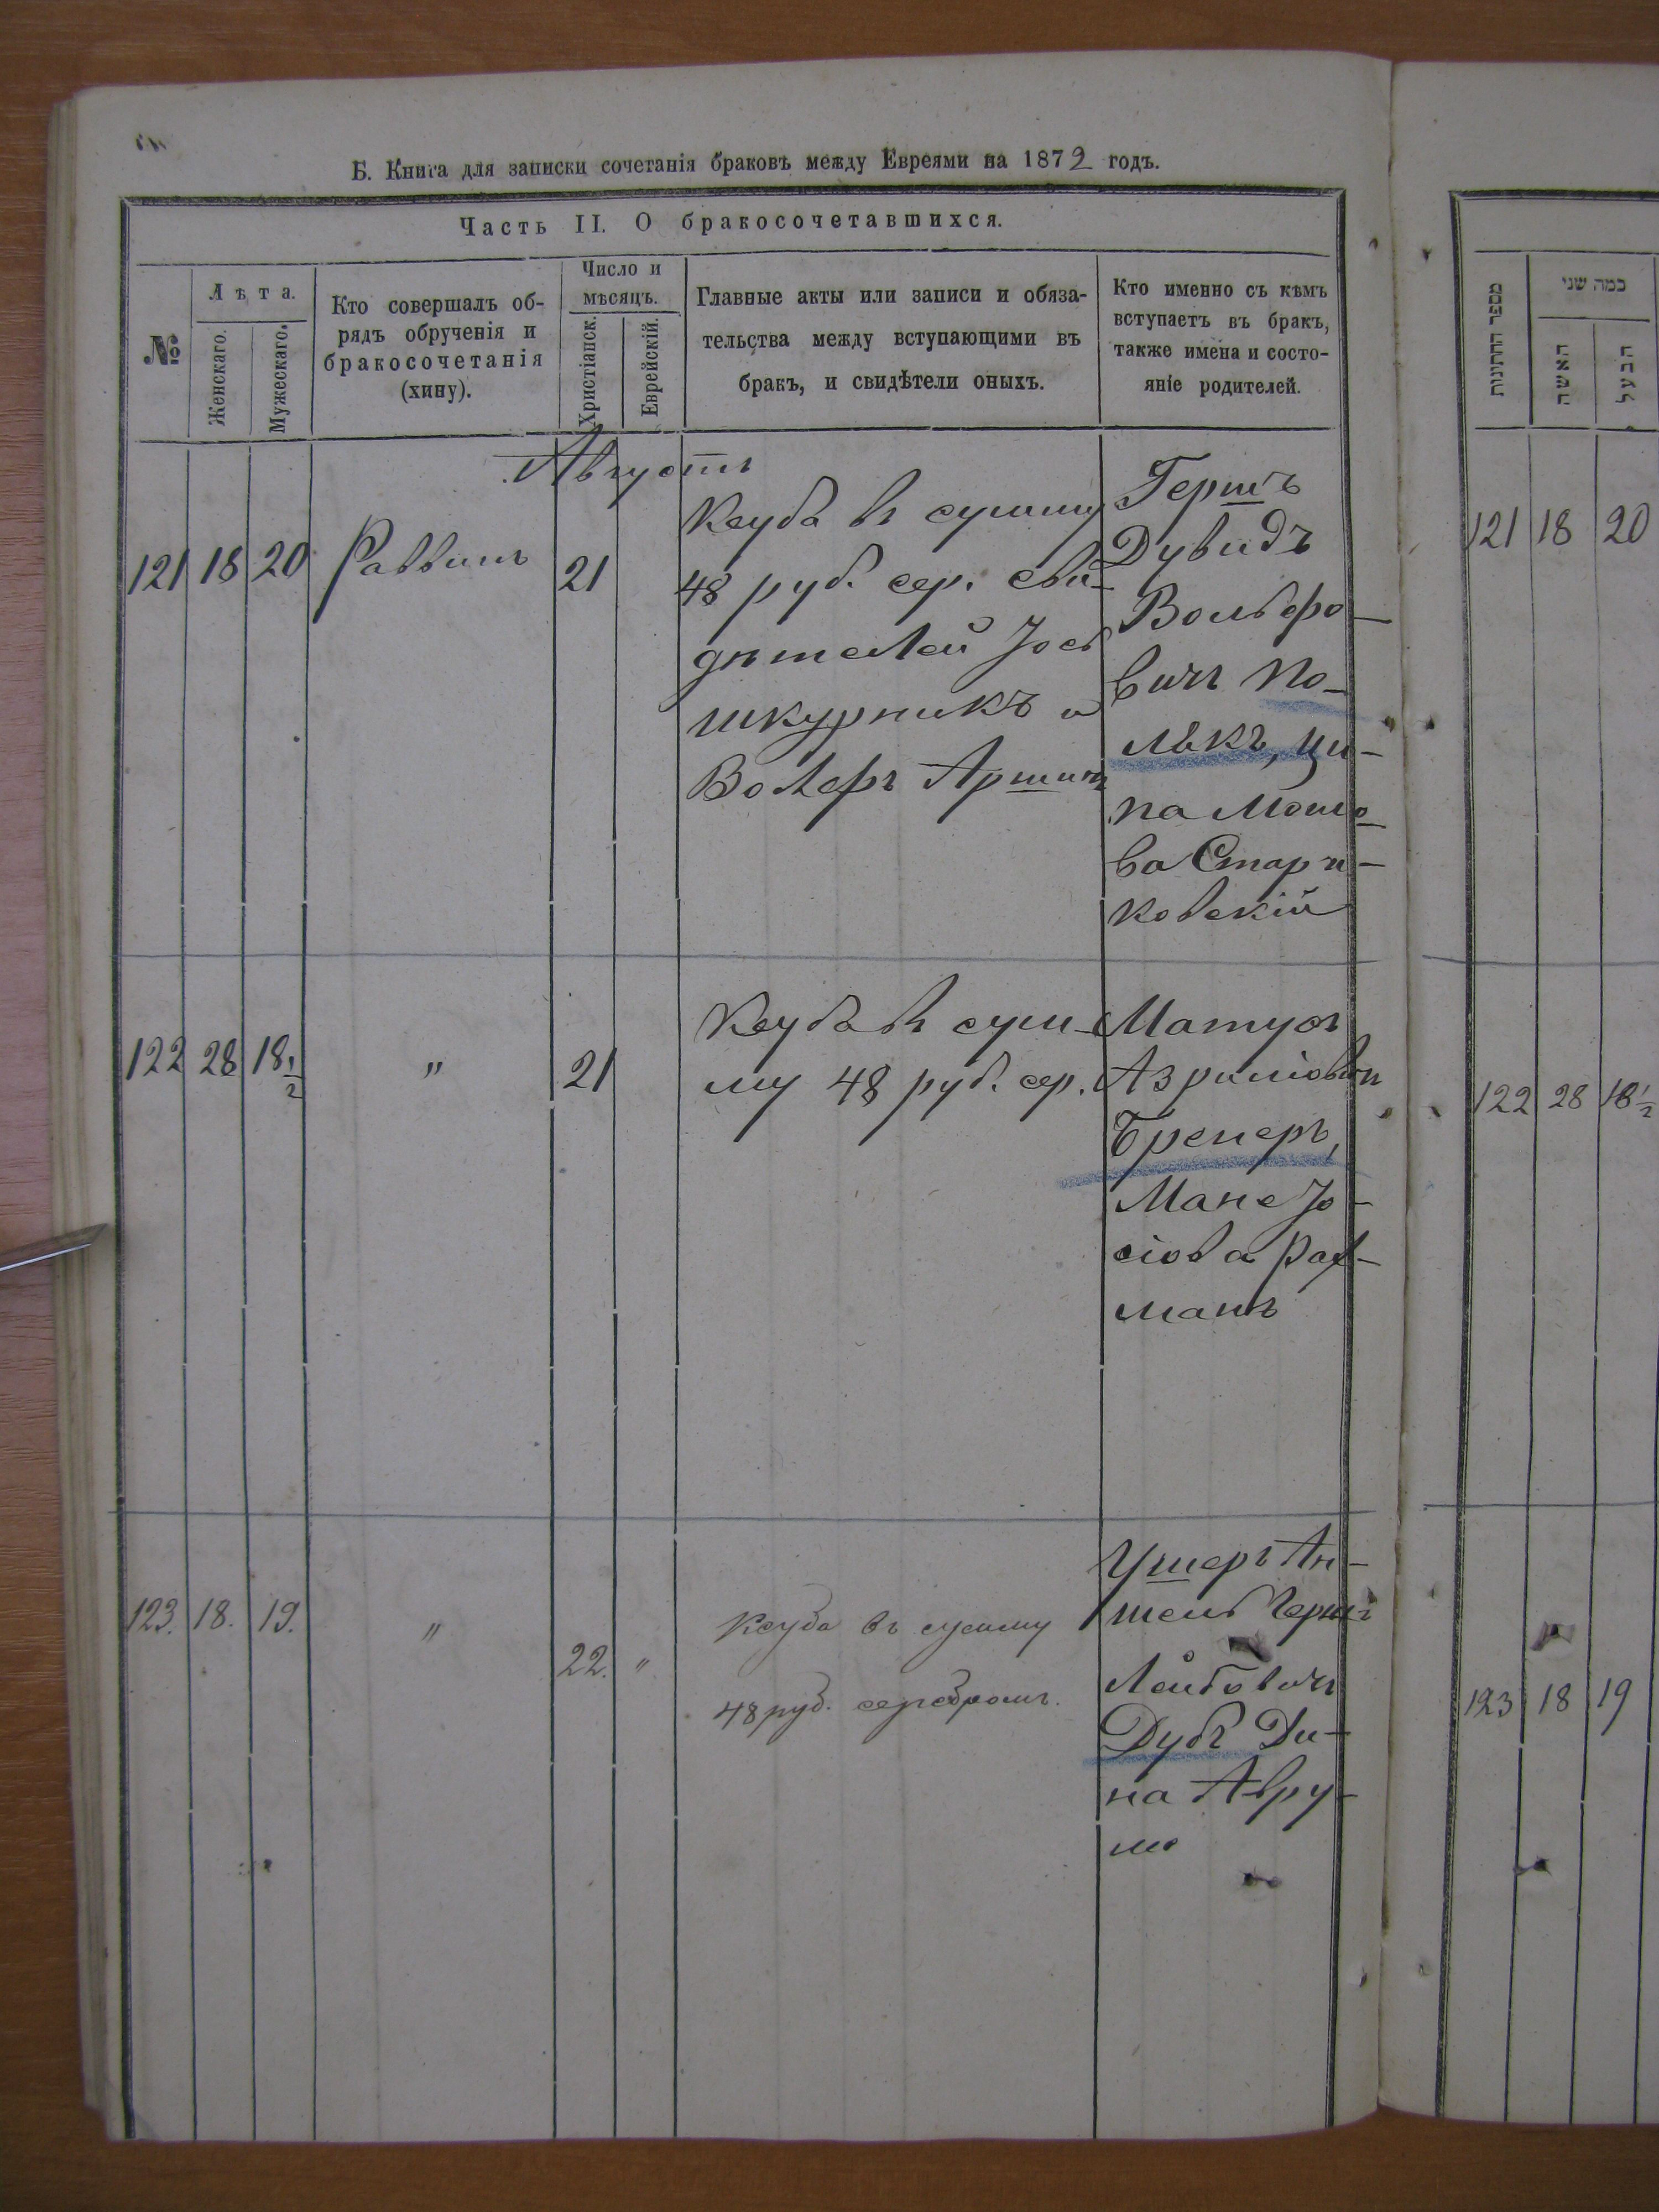 Б. Книга для записки сочетанія браковъ между Евреями на 1872 годъ.
Часть II. О бракосочетавшихся.
№
Лѣта.
Женскаго.
Мужескаго.
Кто совершалъ об-
рядъ обрученія и
бракосочетанія
(хину).
Число и
мѣсяцъ.
Христіанск.
Еврейскій.
Главные акты или записи и обяза-
тельства между вступающими въ
бракъ, и свидѣтели оныхъ.
Кто именно съ кѣмъ
вступаетъ въ бракъ,
также имена и состо-
яніе родителей.
Августъ
121 18 20 Раввинъ 21
Ксуба въ сумму
48 руб. сер. сви-
дѣтелей Іось
Шкурникъ и
Волефъ Аршинъ
Гершъ
Дувидъ
Вольфо-
вичъ По-
лѣкъ, Ци-
па Мошо-
ва Стари-
ковскій
122 28 18 1/2 " 21
Ксуба въ сум-
му 48 руб. сер.
Матусъ
Азриліовичъ
Бремеръ,
Мане Іо-
сіова Рах-
манъ
123. 18. 19. " 22. "
Ксуба въ сумму
48 руб. серебромъ.
Ушеръ Ан-
шель Герш
Лейбовичъ
Дубъ Ди-
на Авру-
мо
מספר החתונות
כמה שני
האשה
הבעל
121 18 20
122 28 18 1/2
123 18 19